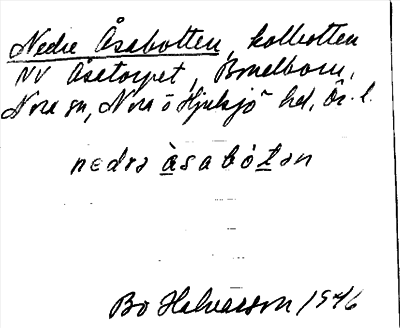 Nedre Åsabotten, kolbotten
NV Åsatorpet, Bondborn,
Nora sn, Nora o Hjulsjö hd, Ör. l.
nedrə àsabòtən
Bo Halvarsson 1946